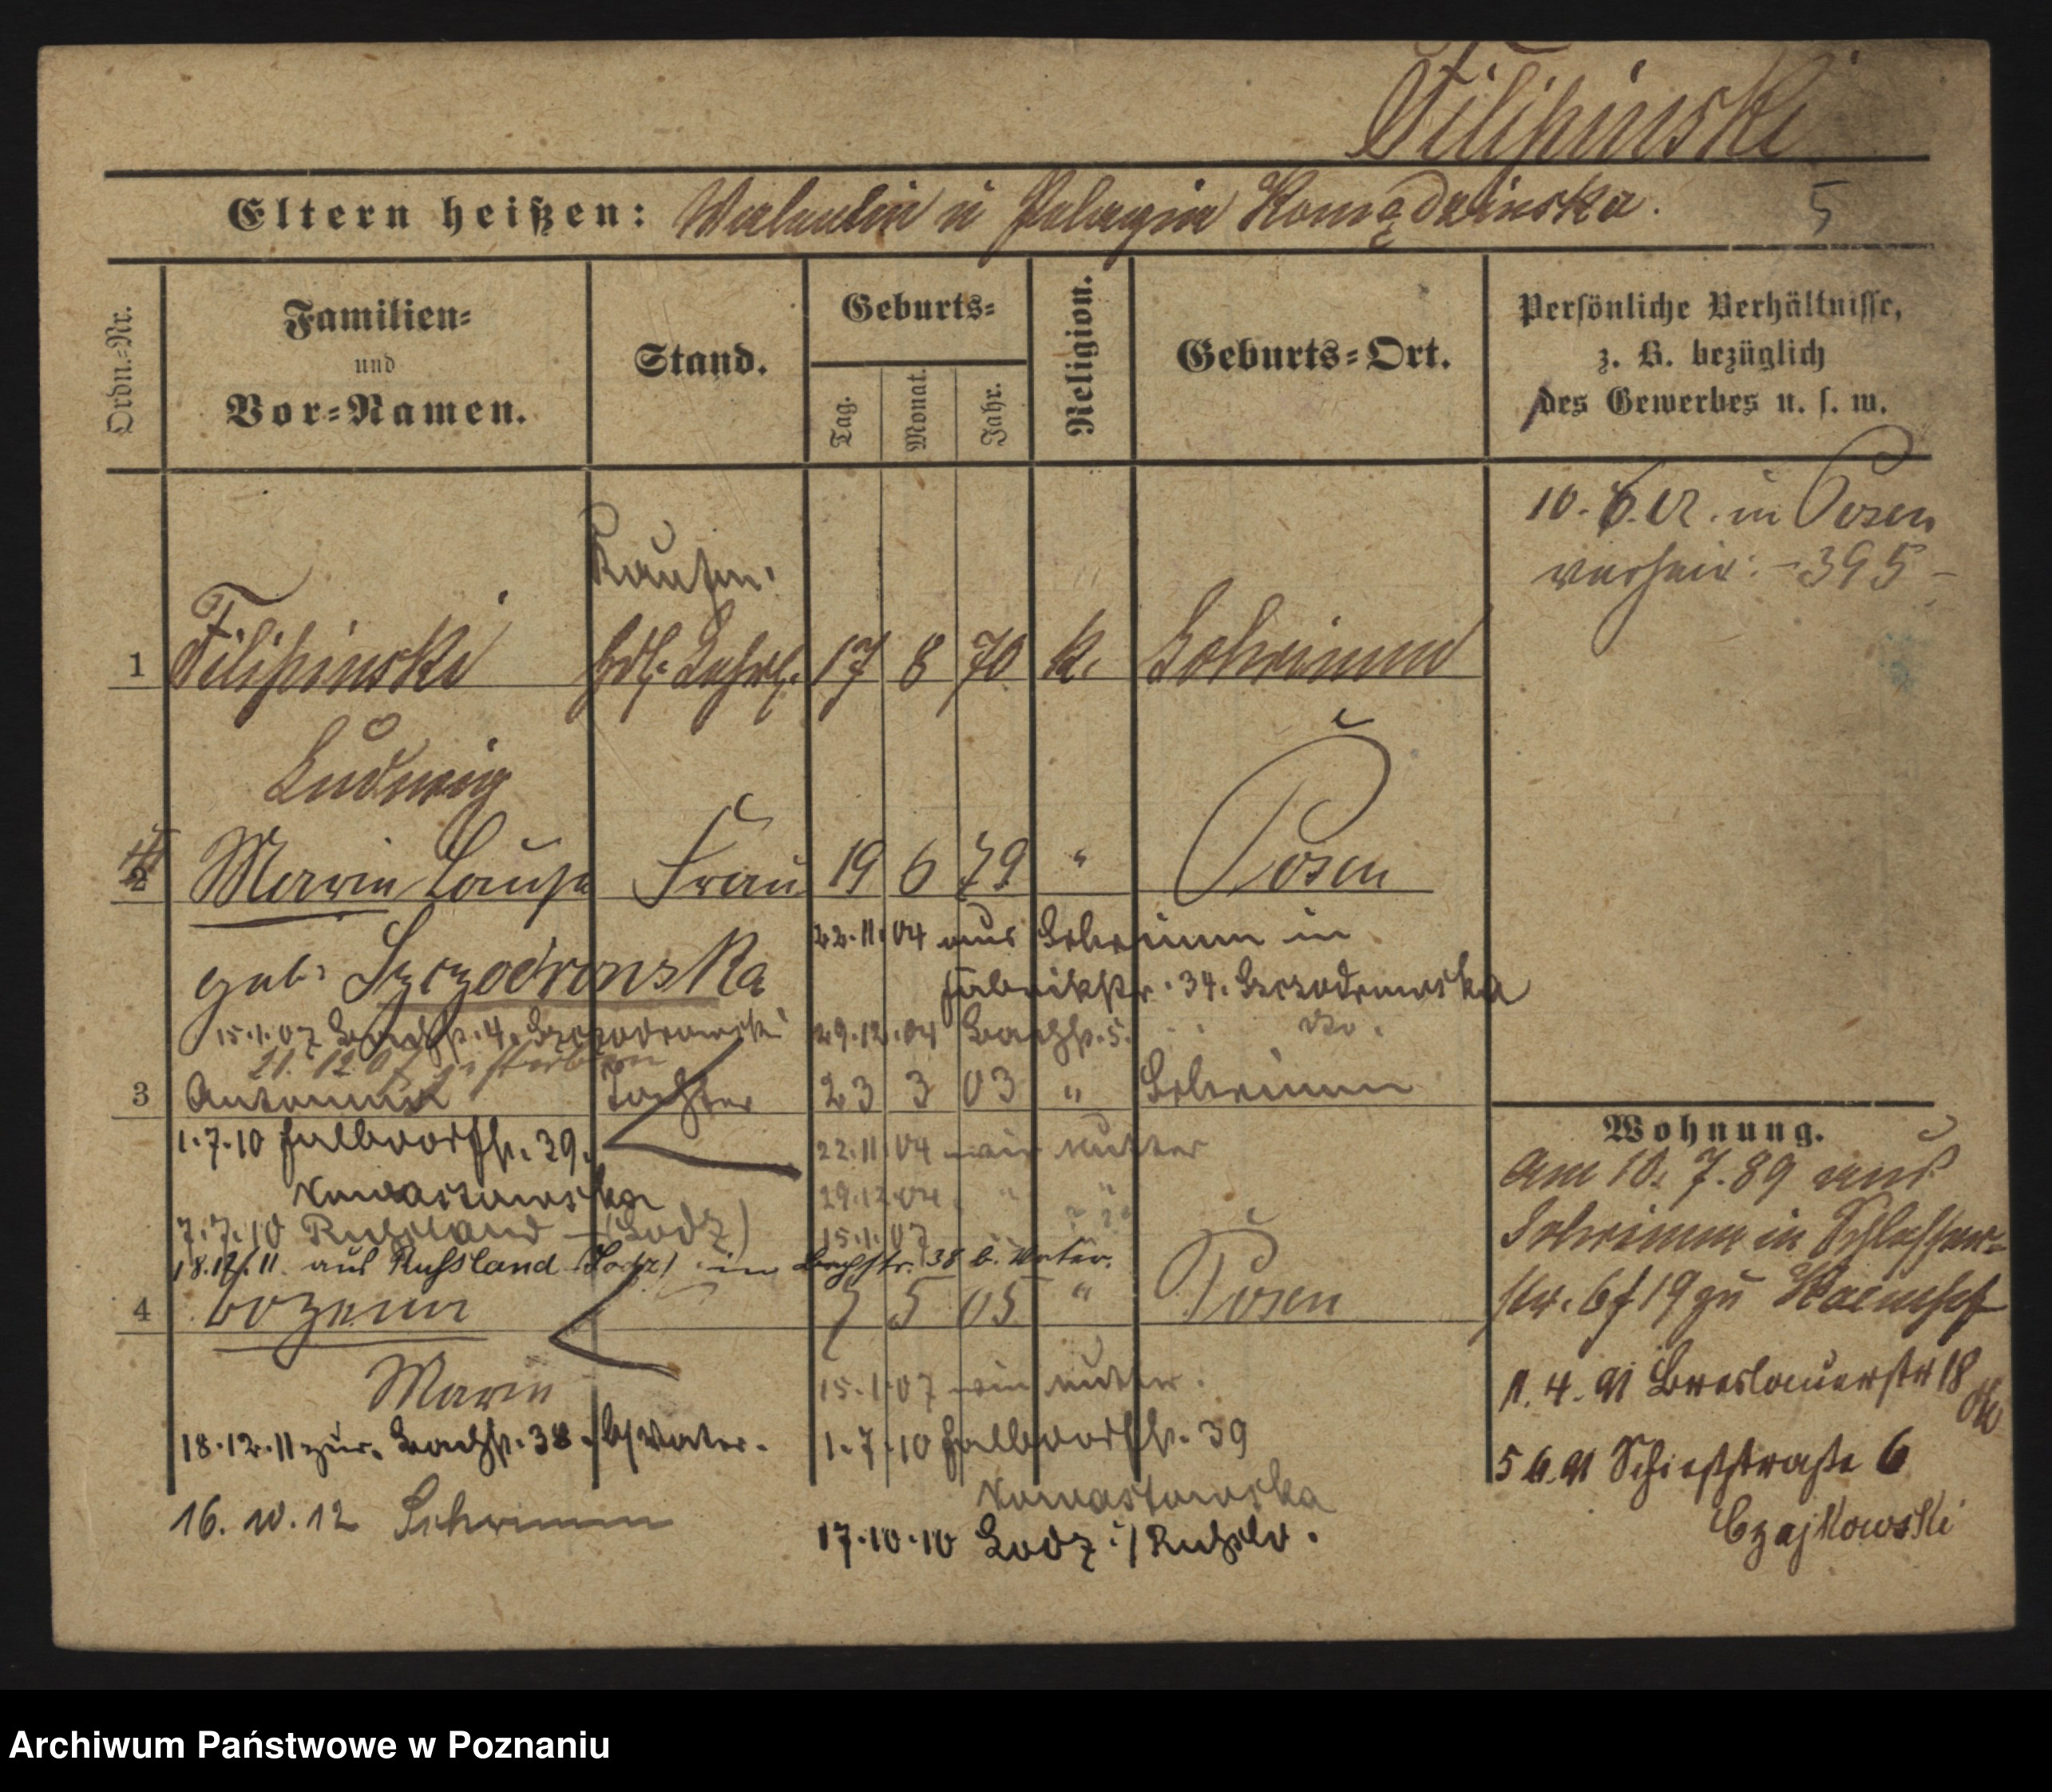 Filipinski
Eltern heißen: Valentin u Pelagia Komędzinska.
5
Ordn.-Nr.
Familien-
und
Vor-Namen.
Stand.
Geburts-
Tag.
Monat.
Jahr.
Religion.
Geburts-Ort.
Persönliche Verhältnisse,
z. B. bezüglich
des Gewerbes u. s. w.
10. 6. 02. in Posen
verheir: -395-
Kaufm.
1 Filipinski Hdl. Lehrl. 17 8 70 k. Schrimm
Ludwig
2 Maria Louise Frau 19 6 79 " Posen
22.11.04 aus Schrimm in
geb: Szczodrowska
Fabrikstr. 34. Szczodrowska
15.1.07 Bachstr. 4. Szczodrowski
29.12.04 Bachstr. 5. do.
21. 12 07 gestorben
3 Antonina Tochter 23 3 03 " Schrimm
1.7.10 Halbdorfstr. 39.
22.11.04 wie Mutter
29.12.04 " "
7.7.10 Russland (Lodz)
15.1.07 " "
18.12.11 aus Russland (Lodz) in Bachstr. 38 b. Vater.
4 7 5 05 " Posen
Maria
15.1.07 wie Mutter.
18.12.11 zur. Bachstr. 38. b/Vater.
1.7.10 Halbdorfstr. 39
16. 10. 12 Schrimm
17.10.10 Lodz i/Russld.
Wohnung.
Am 10. 7. 89 aus
Schrimm in Schlosser-
str. 6 f 19 zu
1. 4. 91 Breslauerstr 18
5 6. 91 Schießstraße 6
Czajkowski
Archiwum Państwowe w Poznaniu